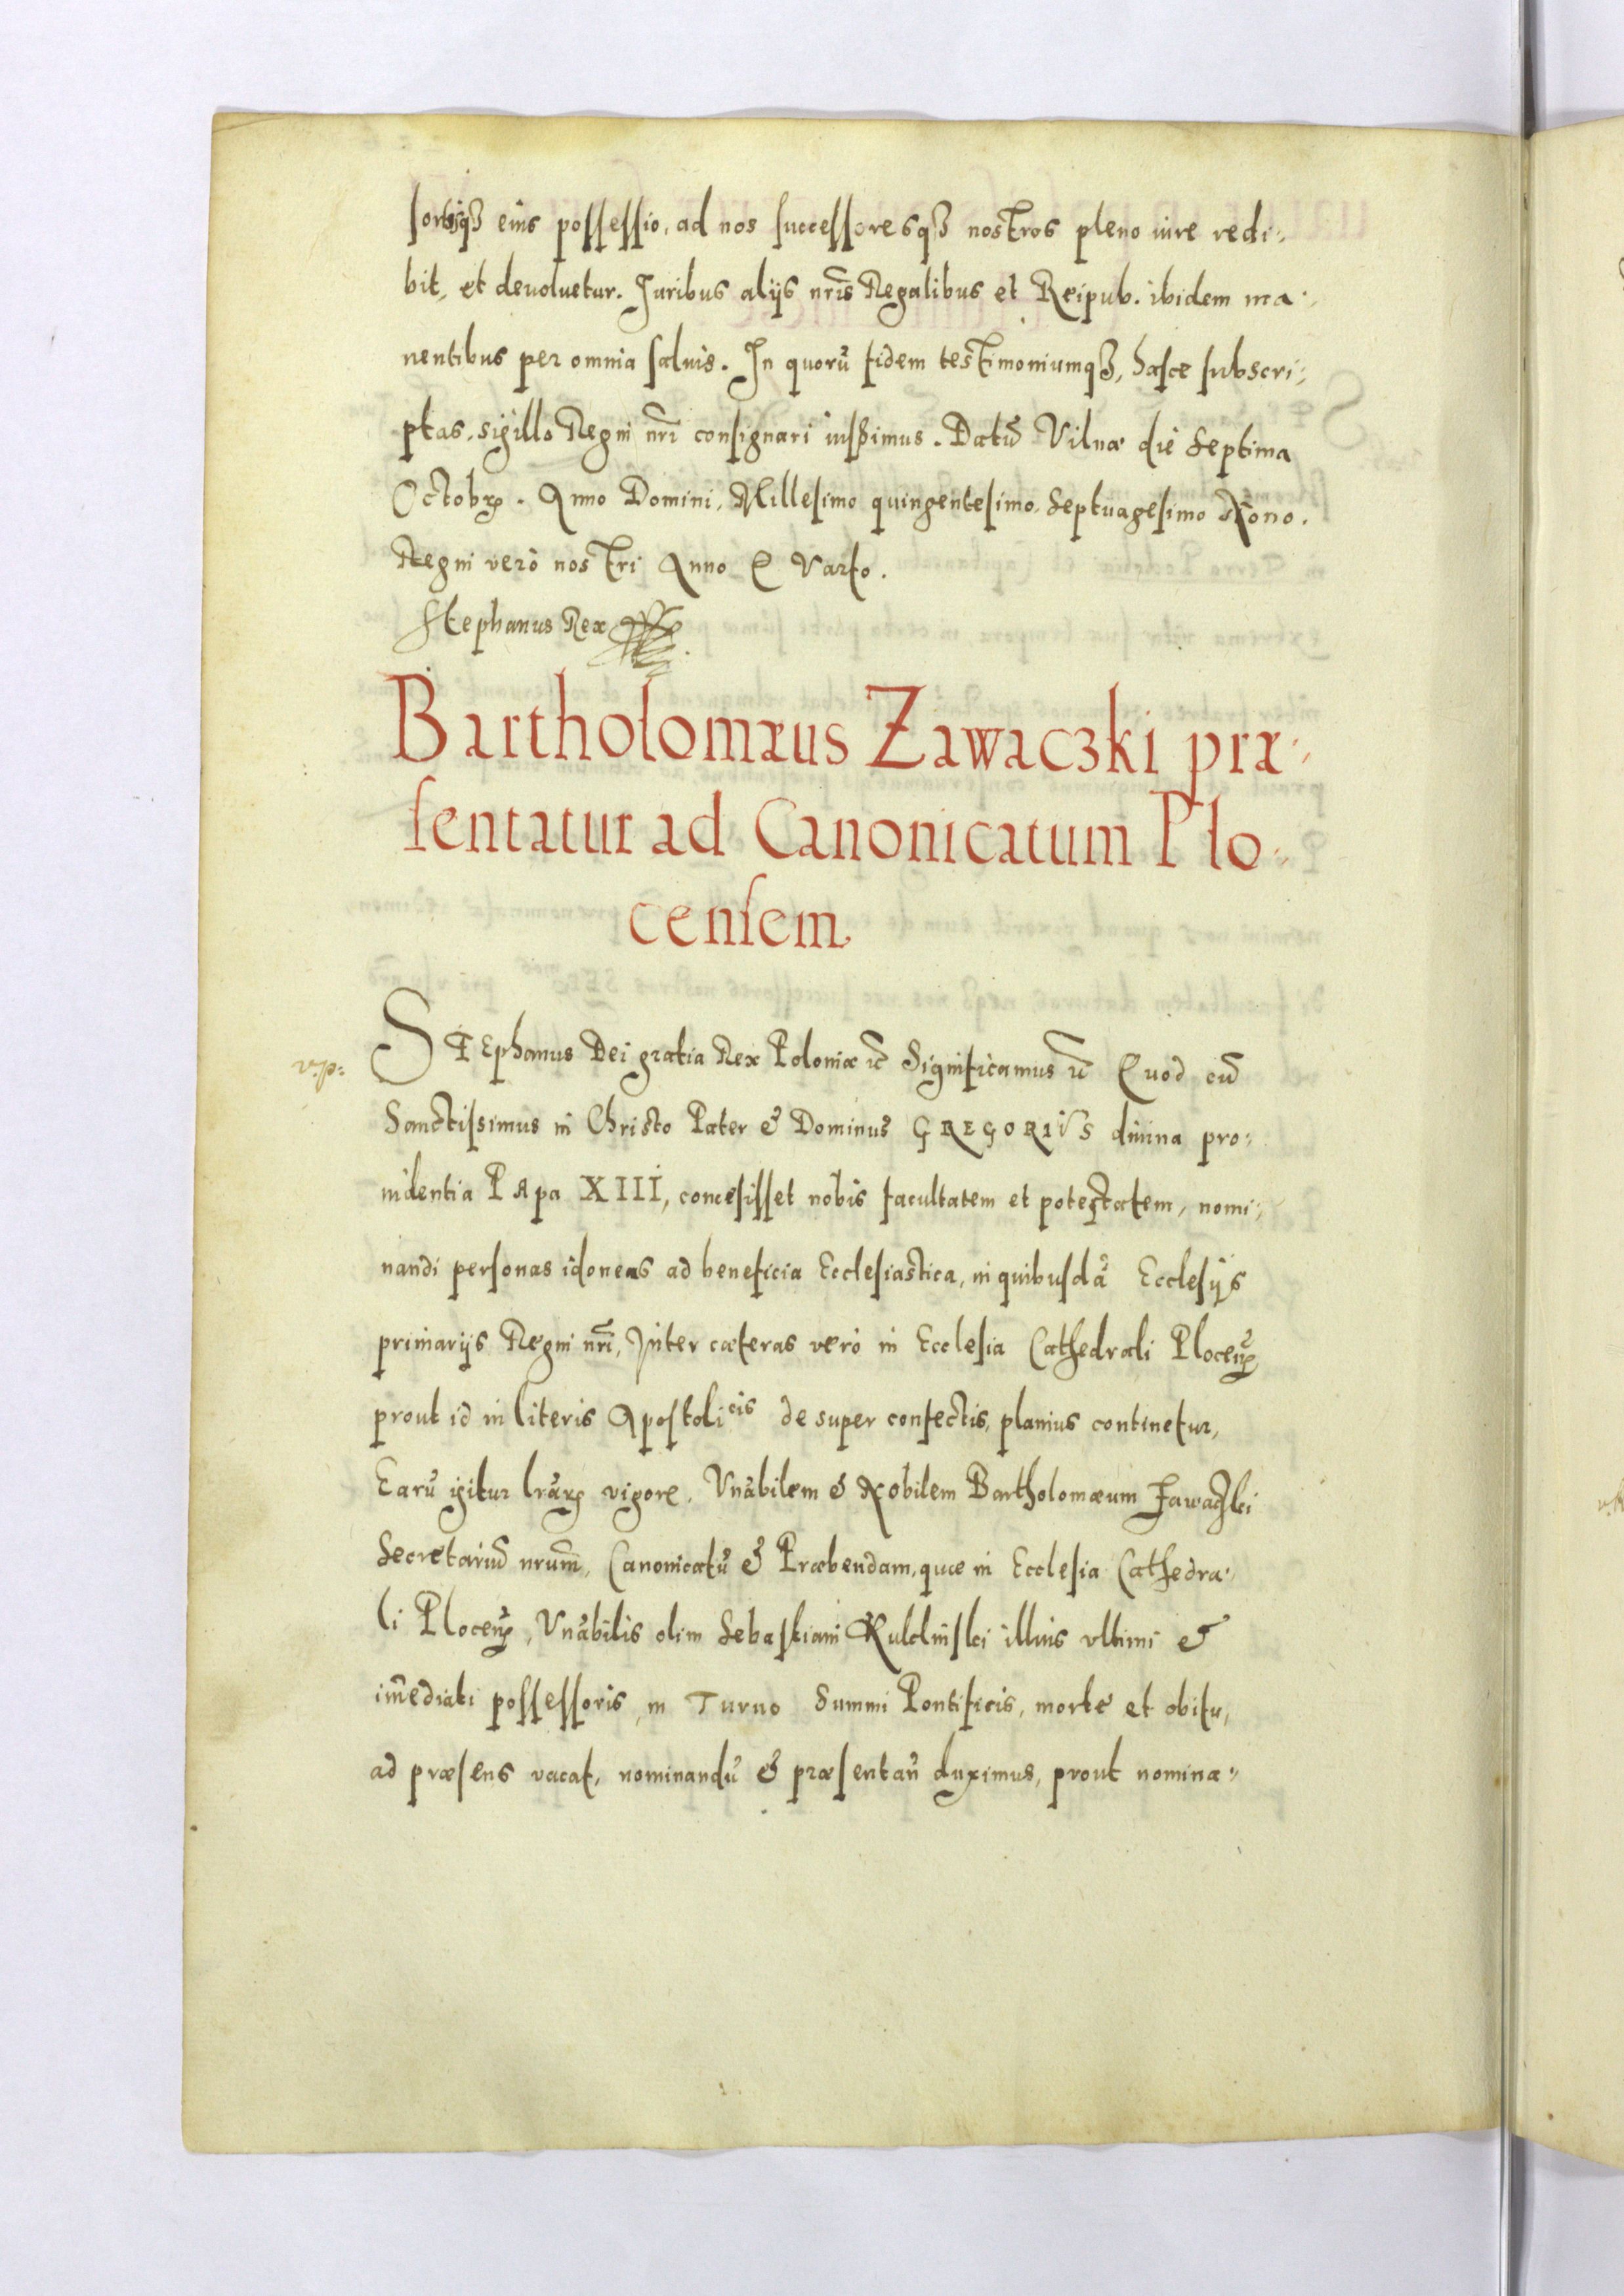 sortisqꝫ eius possessio, ad nos successoresqꝫ nostros pleno iure redi-
bit, et deuoluetur. Juribus alijs nrĩs Regalibus et Reipub. ibidem ma-
nentibus per omnia saluis. In quorũ fidem testimoniumqꝫ, hasce subscri-
ptas, sigillo Regni nrĩ consignari iussimus. Datũ Vilnæ die Septima
Octobrꝭ. Anno Domini, Millesimo quingentesimo, Septuagesimo Nono.
Regni verò nostri Anno Quarto.
Stephanus Rex
Bartholomæus Zawaczki præ-
sentatur ad Canonicatum Plo-
censem.
v.p:
STEphanus Dei gratia Rex Poloniæ ꝛc̃ Significamus ꝛc̃ Quod cũ
Sanctissimus in Christo Pater & Dominus GREGORIVS diuina pro-
uidentia PApa XIII, concesisset nobis facultatem et potestatem, nomi-
nandi personas idoneas ad beneficia Ecclesiastica, in quibusdã Ecclesijs
primarijs Regni nrĩ, Inter cæteras verò in Ecclesia Cathedrali Ploceñ
prout id in literis Apostolicis de super confectis, planius continetur,
Earũ igitur lrãrꝫ vigore, Vnãbilem & Nobilem Bartholomæum Zawaczki
Secretariũ nrum̃, Canonicatũ & Præbendam, quæ in Ecclesia Cathedra-
li Ploceñ, Vnãbilis olim Sebastiani Kuklinski illius vltimi &
im̃ediati possessoris, in Turno Summi Pontificis, morte et obitu,
ad præsens vacat, nominandũ & præsentañ duximus, prout nomina-